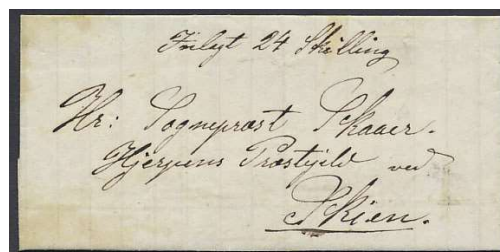 Frilagt 24 Skilling
Hr: Sognepræst Skaaer.
Hjerpens Præstgjeld ved
Skien.